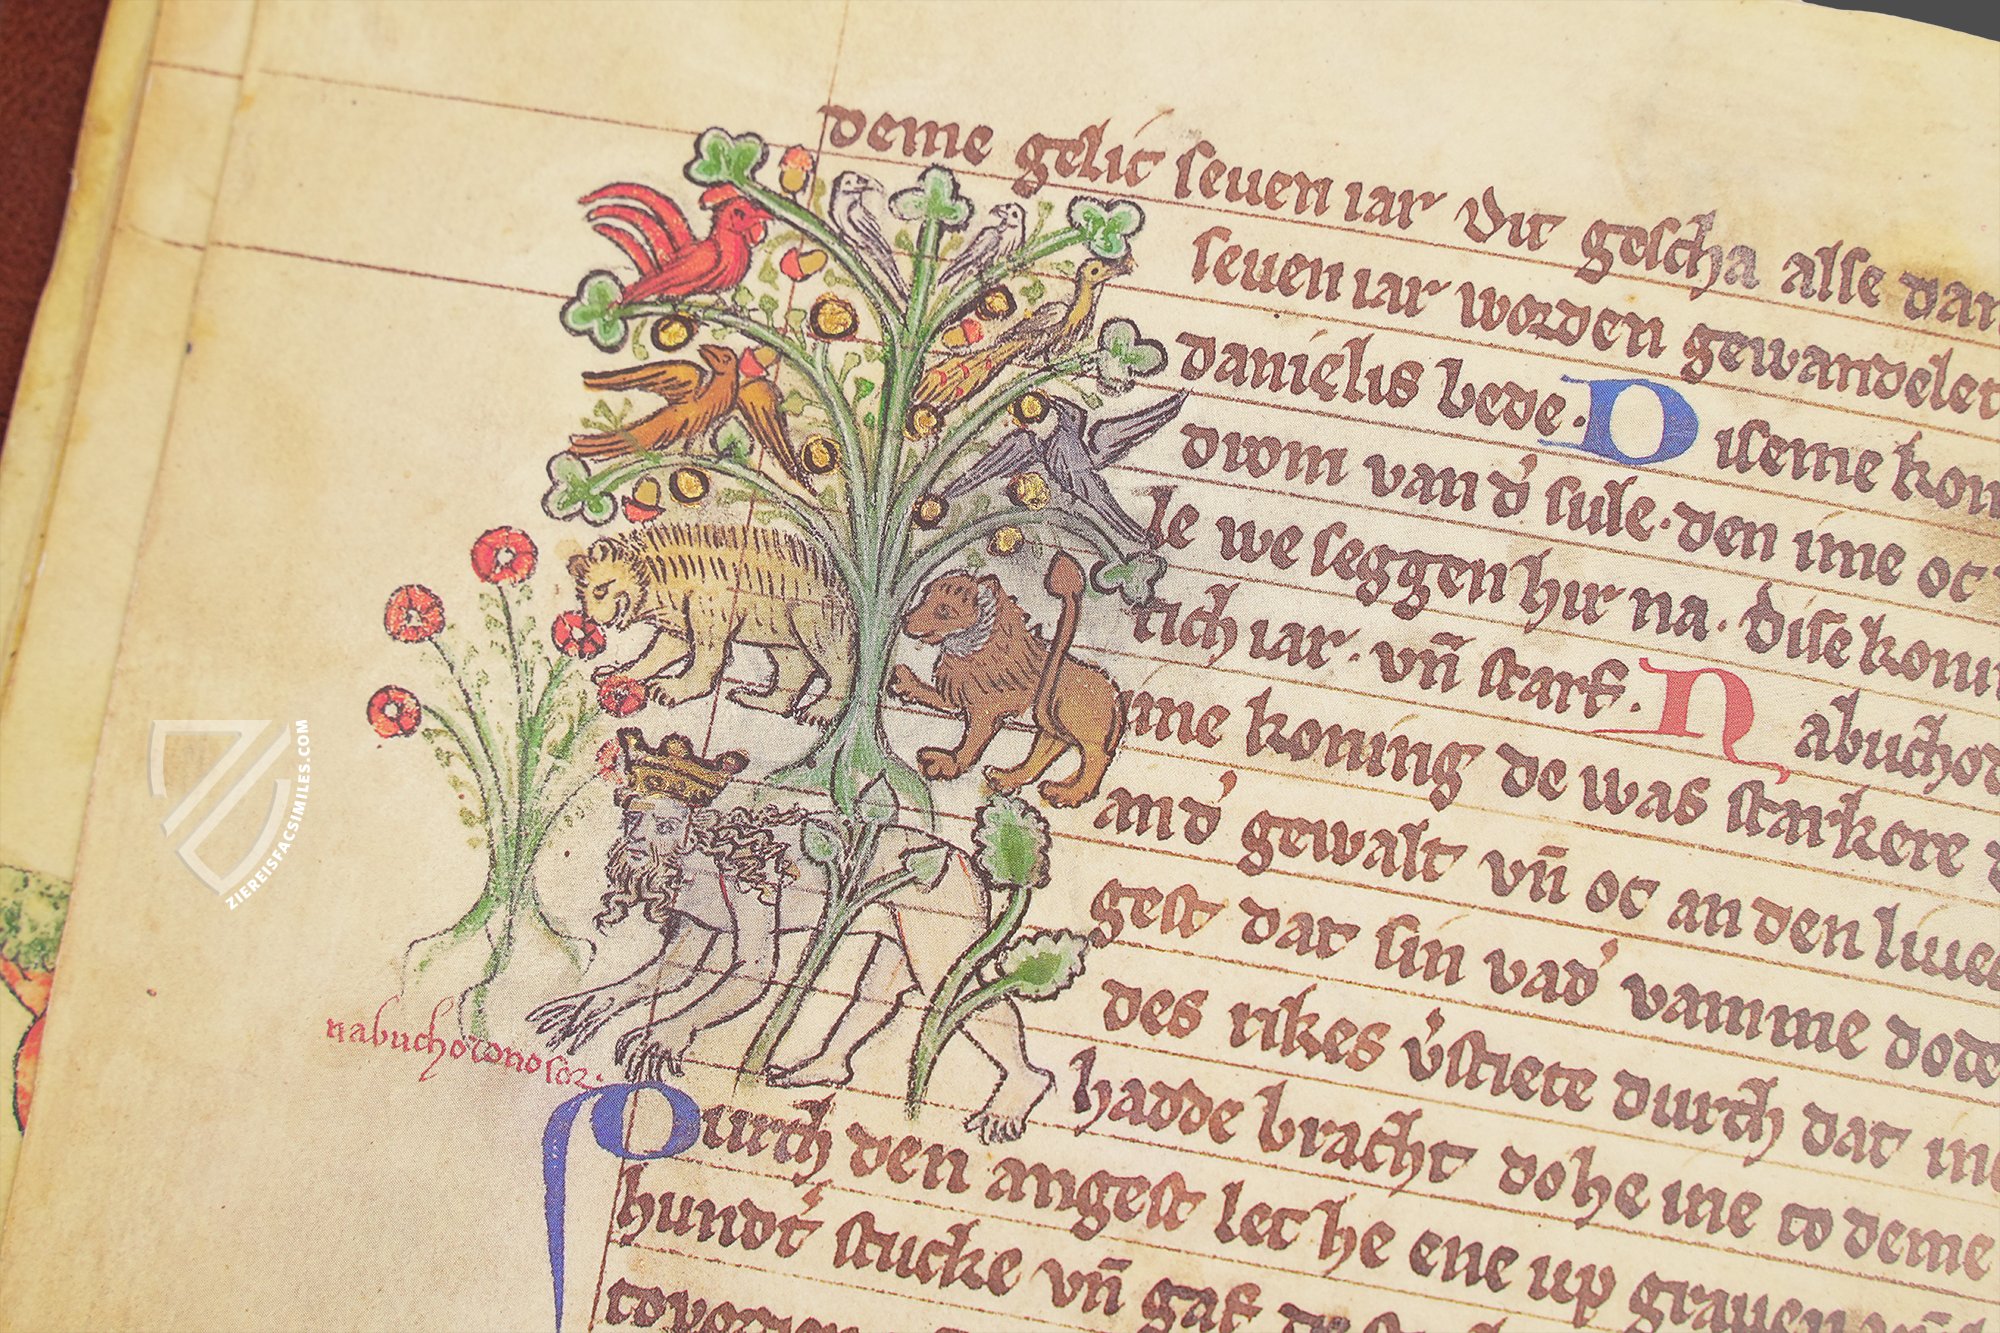 deme gelic seuen iar Dit gescha alse dar
seuen iar worden gewandelet
danielis bede. Diseme kon
drom van d' sule. den ime oc
le we seggen hir na. Dise konin
tich iar. vn̄ starf. Nabuchod
ime koning de was starkere
an d' gewalt vn̄ oc an den liue
gest dat sin vad' vamme dode
des rikes v'stiete durch dat
hadde bracht do he ine to deme
nabuchodonosor.
Durch den angest let he ene up grauen
hund't stucke vn̄ gaf
ZIEREISFACSIMILES.COM